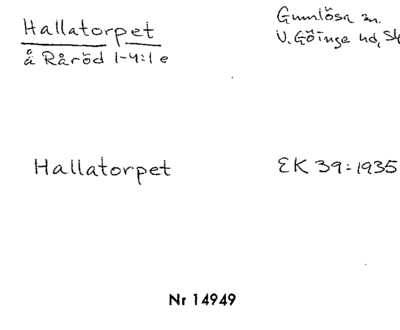 Hallatorpet
å Råröd 1-4:1 e
Gumlösa sn.
V. Göinge hd, Sk
Hallatorpet
EK 39:1935
Nr 14949